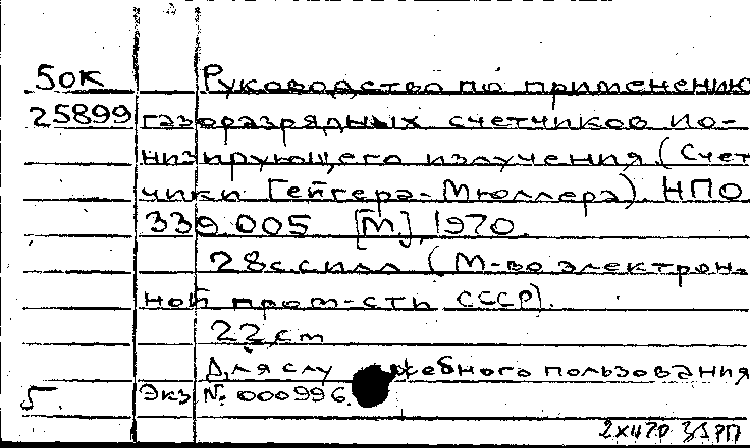 50к Руководство по применению
25899 газоразрядных счетчиков ио-
низирующего излучения (Счет
чики Гейгера-Мюллера) НПО
339.005 [М.], 1970.
28с.с илл (М-во электрон-
ной пром-сти СССР).
22 см
Для служебного пользования
5. Экз № 000996.